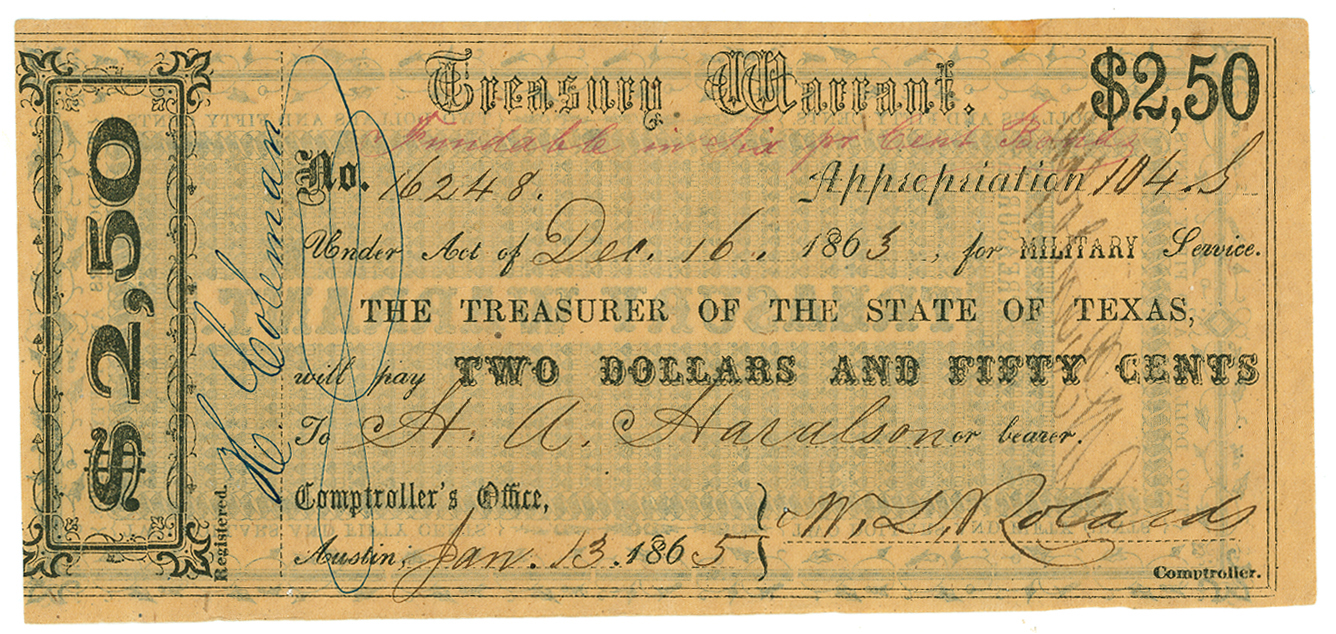 $2,50
H. Coleman
Registered.
Treasury Warrant.
$2,50
Fundable in Six pr Cent Bonds
No. 16248.
Appropriation 104. S
Under Act of Dec. 16. 1863, for MILITARY Service.
THE TREASURER OF THE STATE OF TEXAS,
will pay TWO DOLLARS AND FIFTY CENTS
To H. A. Haralson or bearer.
Comptroller's Office,
Austin, Jan. 13. 1865
W. L. Robards
Comptroller.